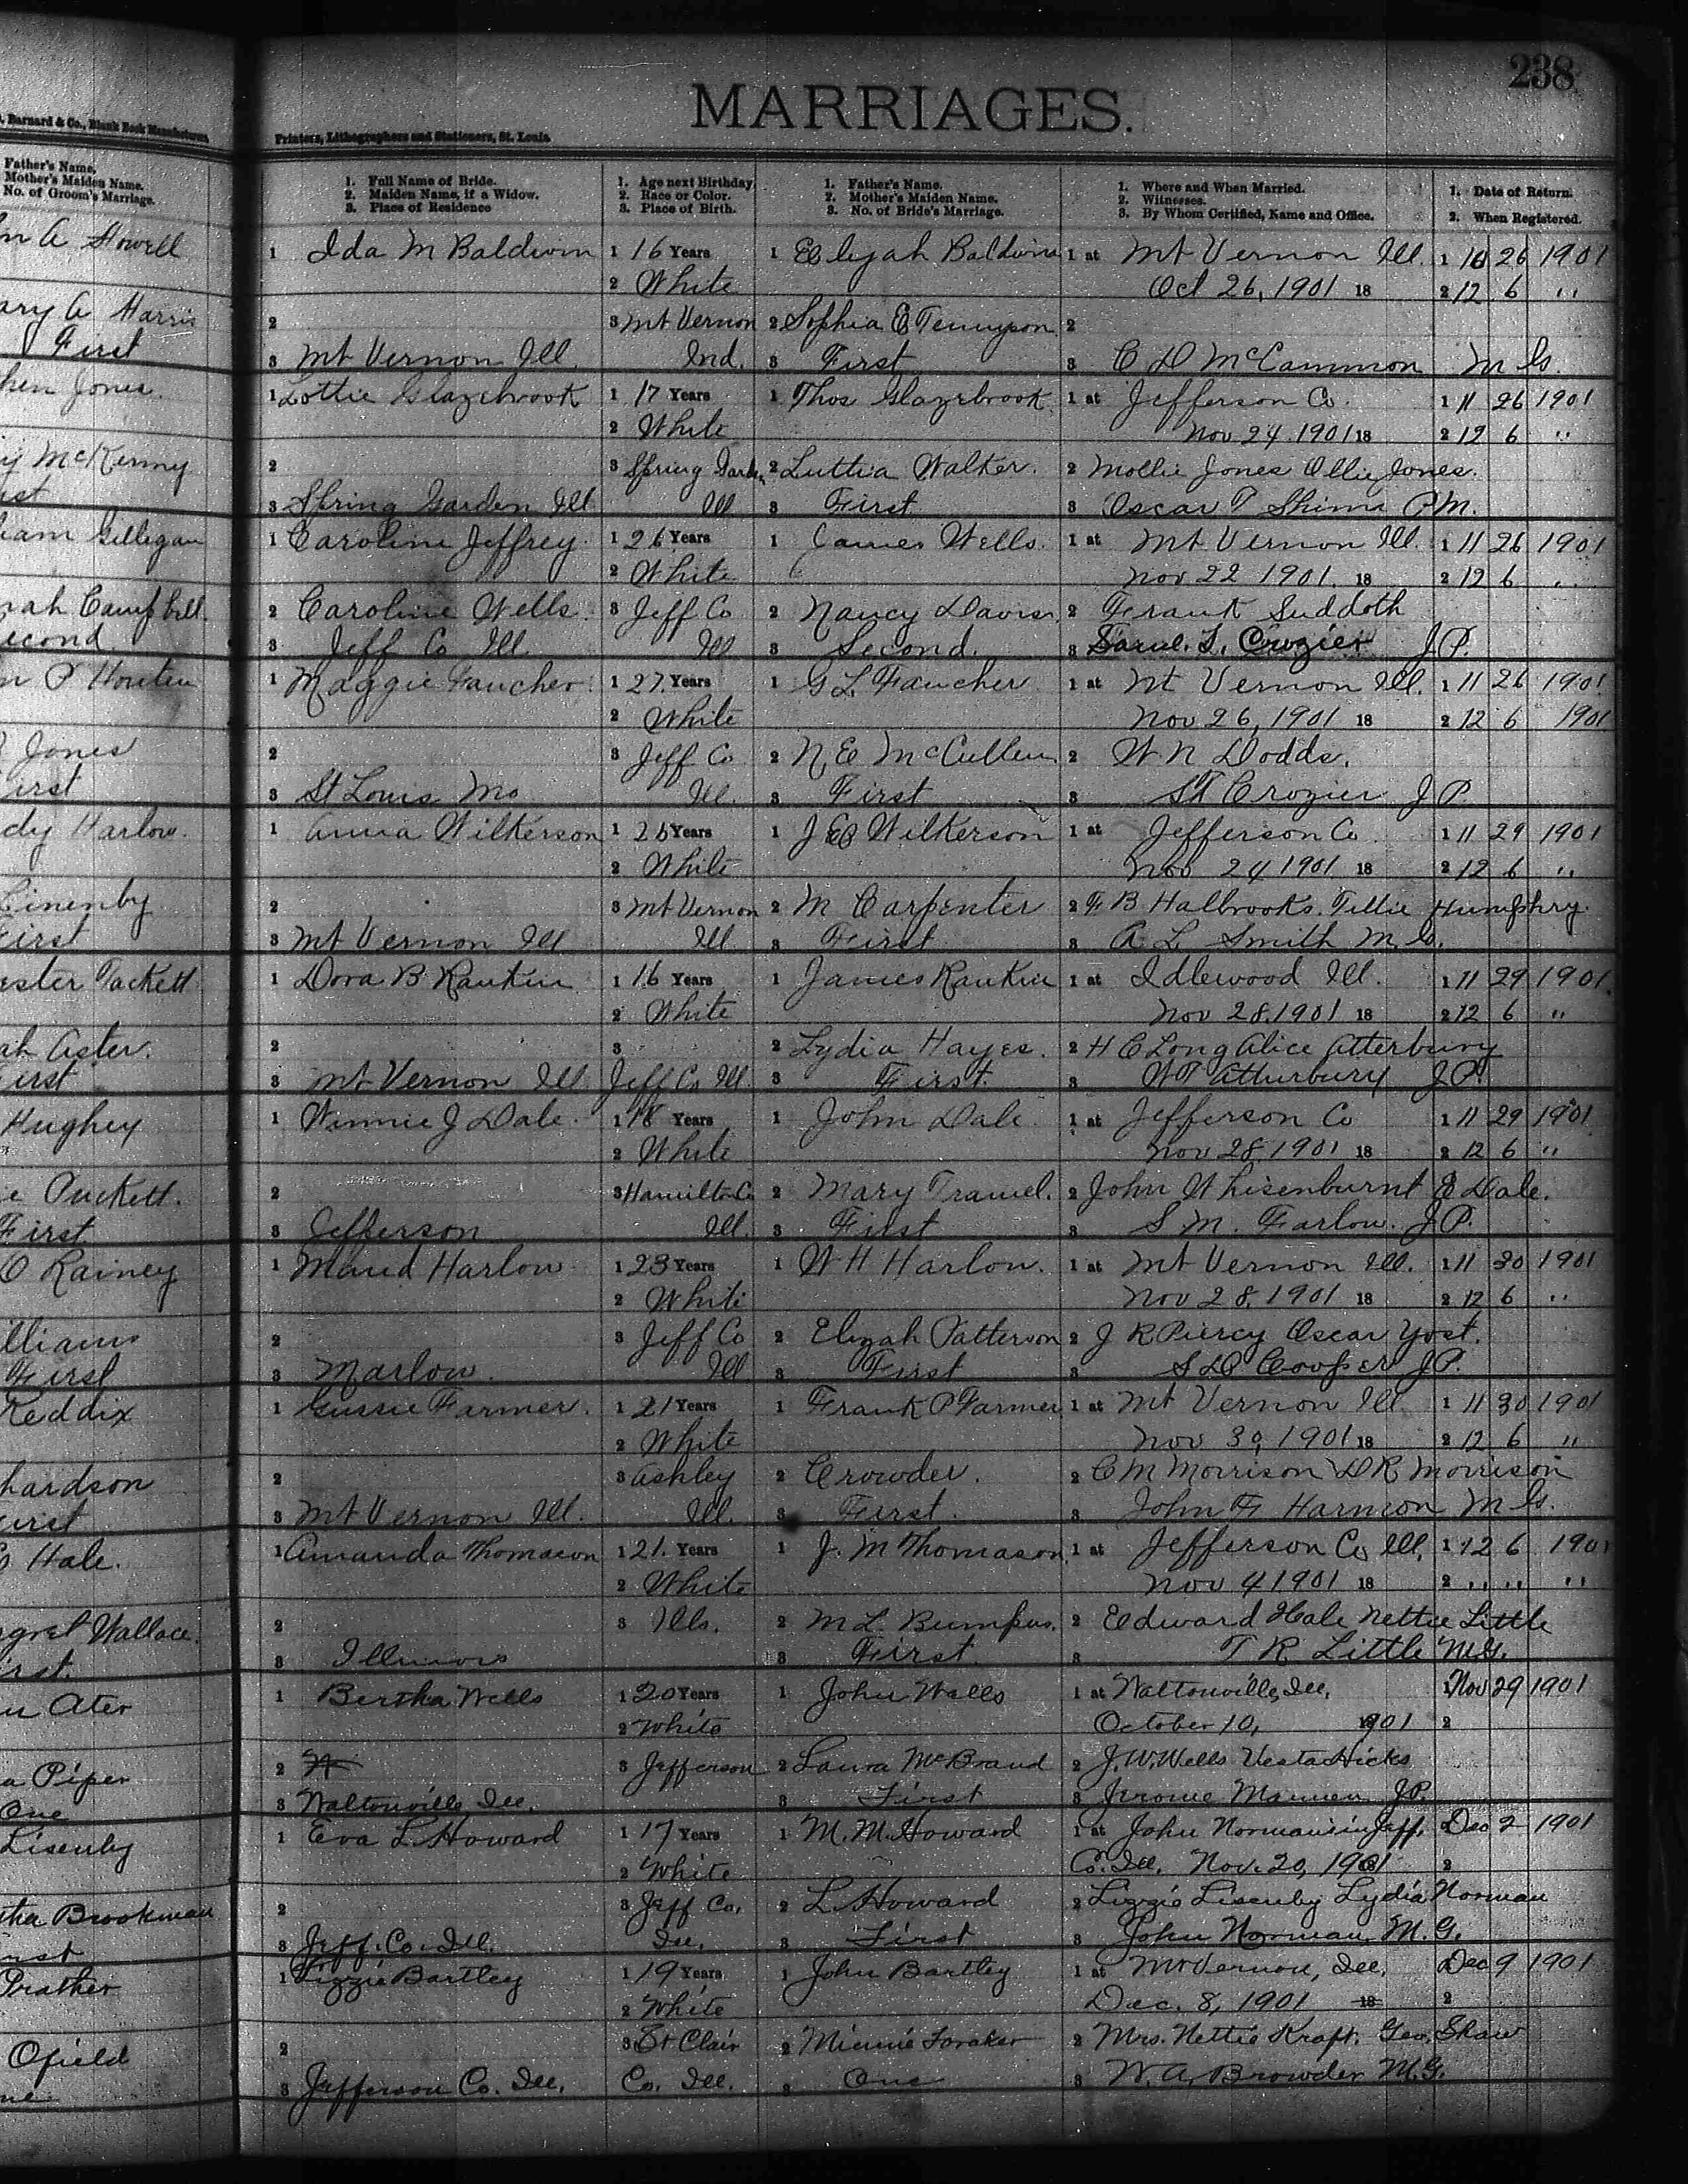 238
MARRIAGES.
Barnard & Co., Blank Book Manufacturers,
Printers, Lithographers and Stationers, St. Louis.
Father's Name,
Mother's Maiden Name.
No. of Groom's Marriage.
1. Full Name of Bride.
2. Maiden Name, if a Widow.
3. Place of Residence
1. Age next Birthday.
2. Race or Color.
3. Place of Birth.
1. Father's Name.
2. Mother's Maiden Name.
3. No. of Bride's Marriage.
1. Where and When Married.
2. Witnesses.
3. By Whom Certified, Name and Office.
1. Date of Return.
2. When Registered.
A Howell 1 Ida M Baldwin 1 16 Years 1 Elijah Baldwin 1 at Mt Vernon Ill. 1 10 26 1901
2 White Oct 26, 1901 18 2 12 6 "
ary A Harris 2 3 Mt Vernon 2 Sophia E Tennyson 2
First 3 Mt Vernon Ill. Ind. 3 First 3 C D McCammon M G.
hen Jones. 1 Lottie Glazebrook 1 17 Years 1 Thos Glazebrook. 1 at Jefferson Co. 1 11 26 1901
2 White Nov 24 1901 18 2 12 6 "
McKenny 2 3 Spring Garden 2 Luttia Walker. 2 Mollie Jones Ollie Jones.
st 3 Spring Garden Ill Ill 3 First 3 Oscar T P.M.
iam Gilligan 1 Caroline Jeffrey 1 26 Years 1 James Wells. 1 at Mt Vernon Ill. 1 11 26 1901
2 White Nov 22 1901. 18 2 12 6 "
ah Campbell. 2 Caroline Wells. 3 Jeff Co 2 Nancy Davis. 2 Frank Suddoth
econd 3 Jeff Co Ill. Ill 3 Second. 3 Saml. T. Crozier J.P.
n P Houten 1 Maggie Faucher. 1 27. Years 1 G L. Faucher 1 at Mt Vernon Ill. 1 11 26 1901
2 White Nov 26, 1901 18 2 12 6 1901
Jones 2 3 Jeff Co 2 N, E McCullen 2 W N Dodds.
irst 3 St Louis Mo Ill. 3 First 3 ST Crozier J P.
dy Harlow. 1 Anna Wilkerson 1 26 Years 1 J E Wilkerson 1 at Jefferson Co 1 11 29 1901
2 White Nov 24 1901 18 2 12 6 "
2 3 Mt Vernon 2 M Carpenter 2 F B Halbrooks. Tillie Humphry.
irst 3 Mt Vernon Ill Ill 3 First 3 A L Smith M G.
ester Tackett 1 Dora B Rankin 1 16 Years 1 James Rankin 1 at Idlewood Ill. 1 11 29 1901
2 White Nov 28. 1901 18 2 12 6 "
ah Aster. 2 3 2 Lydia Hayes. 2 H C Long Alice Atterbury
irst 3 Mt Vernon Ill Jeff Co Ill. 3 First. 3 W T Atturbury J P.
Hughey 1 Winnie J Dale 1 18 Years 1 John Dale 1 at Jefferson Co 1 11 29 1901
2 White Nov 28, 1901 18 2 12 6 "
Puckett. 2 3 Hamilton Co 2 Mary Tramel. 2 John Whisenburnt E Dale.
First 3 Jefferson Ill. 3 First 3 S M. Farlow. J P.
O Rainey 1 Maud Harlow 1 23 Years 1 W H Harlow. 1 at Mt Vernon Ill. 1 11 30 1901
2 White Nov 28, 1901 18 2 12 6 "
illiams 2 3 Jeff Co 2 Elizah Patterson 2 J R Piercy Oscar Yost.
First 3 Marlow. Ill 3 First 3 S D Cooper J P.
Reddix 1 Gussie Farmer. 1 21 Years 1 Frank P Farmer 1 at Mt Vernon Ill 1 11 30 1901
2 White Nov 30, 1901 18 2 12 6 "
hardson 2 3 Ashley 2 Crowder. 2 C M Morrison D R Morrison
irst 3 Mt Vernon Ill. Ill. 3 First. 3 John F Harmon M G.
Hale. 1 Amanda Thomason 1 21. Years 1 J. M Thomason 1 at Jefferson Co Ill, 1 12 6 1901
2 White Nov 4 1901 18 2 " " "
gret Wallace. 2 3 Ills. 2 M L Bumpus. 2 Edward Hale Nettie Little
irst. 3 Illinois 3 First. 3 T R Little M.G.
Ater 1 Bertha Wells 1 20 Years 1 John Wells 1 at Waltonville, Ill, 1 Nov 29 1901
2 White October 10, 1901 2
a Piper 2 3 Jefferson 2 Laura McBrand 2 J. W. Wells Vesta Hicks
One 3 Waltonville Ill. 3 First 3 Jerome J.P.
Lisenby 1 Eva L. Howard 1 17 Years 1 M. M. Howard 1 at John Norman's in Jeff. Dec 2 1901
2 White Co. Ill. Nov. 20, 1901 2
tha Brookman 2 3 Jeff Co, 2 L Howard 2 Lizzie Lisenby Lydia Norman
irst 3 Jeff. Co. Ill. Ill. 3 First 3 John Norman M. G.
Prather 1 Lizzie Bartley 1 19 Years 1 John Bartley 1 at Mt Vernon, Ill, Dec 9 1901
2 White Dec. 8, 1901 18 2
Ofield 2 3 St Clair 2 Minnie Foraker 2 Mrs. Nettie Kraft. Geo, Shaw
ne 3 Jefferson Co. Ill. Co. Ill. 3 One 3 W. A. Browder M.G.